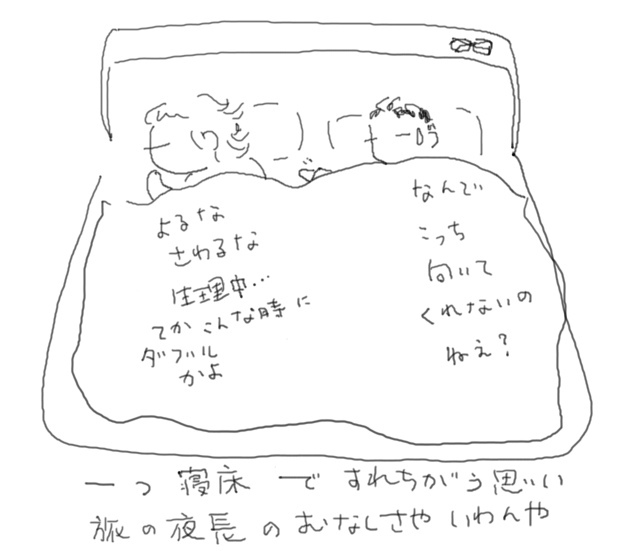 よるな
さわるな
生理中…
てかこんな時に
ダブル
かよ
なんで
こっち
向いて
くれないの
ねえ?
一つ寝床ですれちがう思い
旅の夜長のむなしさやいわんや